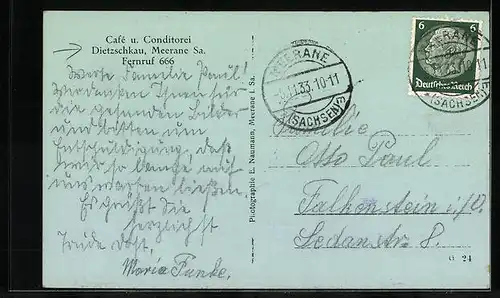 Café u. Conditorei
Dietzschkau, Meerane Sa.
Fernruf 666
Werte Familie Paul!
Wir danken Ihnen für
die gesunden Bilder
und bitten um
Entschuldigung, daß
wir so lange auf
uns warten ließen.
Es grüßt Sie
herzlichst
Maria Funke.
Photographie E. Naumann, Meerane i. Sa.
MEERANE
11.33.10-11
(SACHSEN)
6 6
Deutsches Reich
MEERANE
(SACHSEN)
Familie
Otto Paul
Falkenstein i./V.
Sedanstr. 8.
G 24